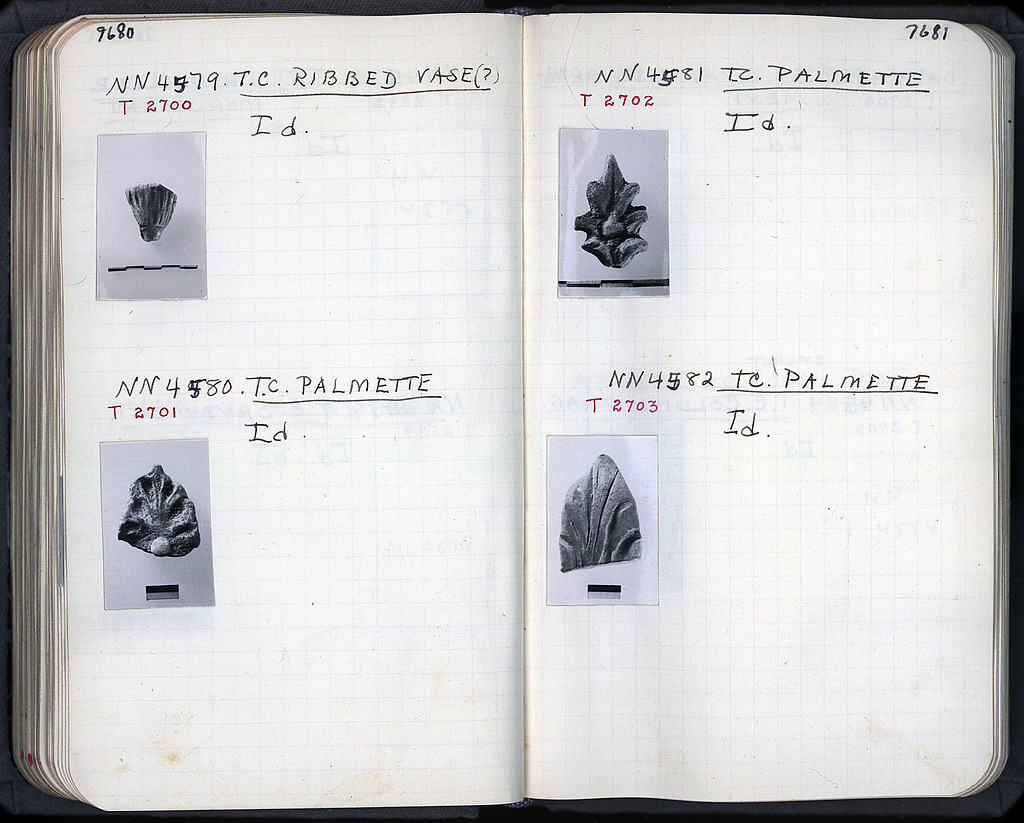 9680
NN 4579. T.C. RIBBED VASE(?)
T 2700
Id.
NN 4580. T.C. PALMETTE
T 2701
Id.
7681
NN 4581 T.C. PALMETTE
T 2702
Id.
NN 4582 T.C. PALMETTE
T 2703
Id.